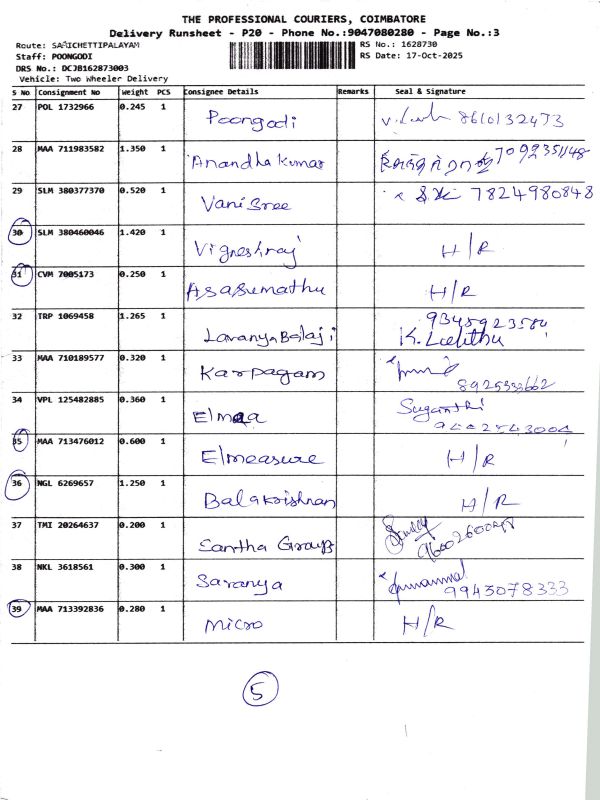 THE PROFESSIONAL COURIERS, COIMBATORE
Delivery Runsheet - P20 - Phone No.:9047080280 - Page No.:3
Route: SAMICHETTIPALAYAM
RS No.: 1628730
Staff: POONGODI
RS Date: 17-Oct-2025
DRS No.: DCJB162873003
Vehicle: Two Wheeler Delivery
S No Consignment No Weight PCS Consignee Details Remarks Seal & Signature
27 POL 1732966 0.245 1 Poongodi 8610132473
28 MAA 711983582 1.350 1 Anandha kumar 7092351148
29 SLM 380377370 0.520 1 Vani Sree 7824980848
30 SLM 380460046 1.420 1 Vigneshraj H/R
31 CVM 7005173 0.250 1 Asasumathu H/R
32 TRP 1069458 1.265 1 Lavanya Balaji 9345923584
K. Lalitha
33 MAA 710189577 0.320 1 Karpagam
34 VPL 125482885 0.360 1 Elmaa Suganthi
35 MAA 713476012 0.600 1 Elmeasure H/R
36 NGL 6269657 1.250 1 Balakrishnan H/R
37 TMI 20264637 0.200 1 Santha Groups
38 NKL 3618561 0.300 1 Saranya 9943078333
39 MAA 713392836 0.280 1 Micro H/R
5